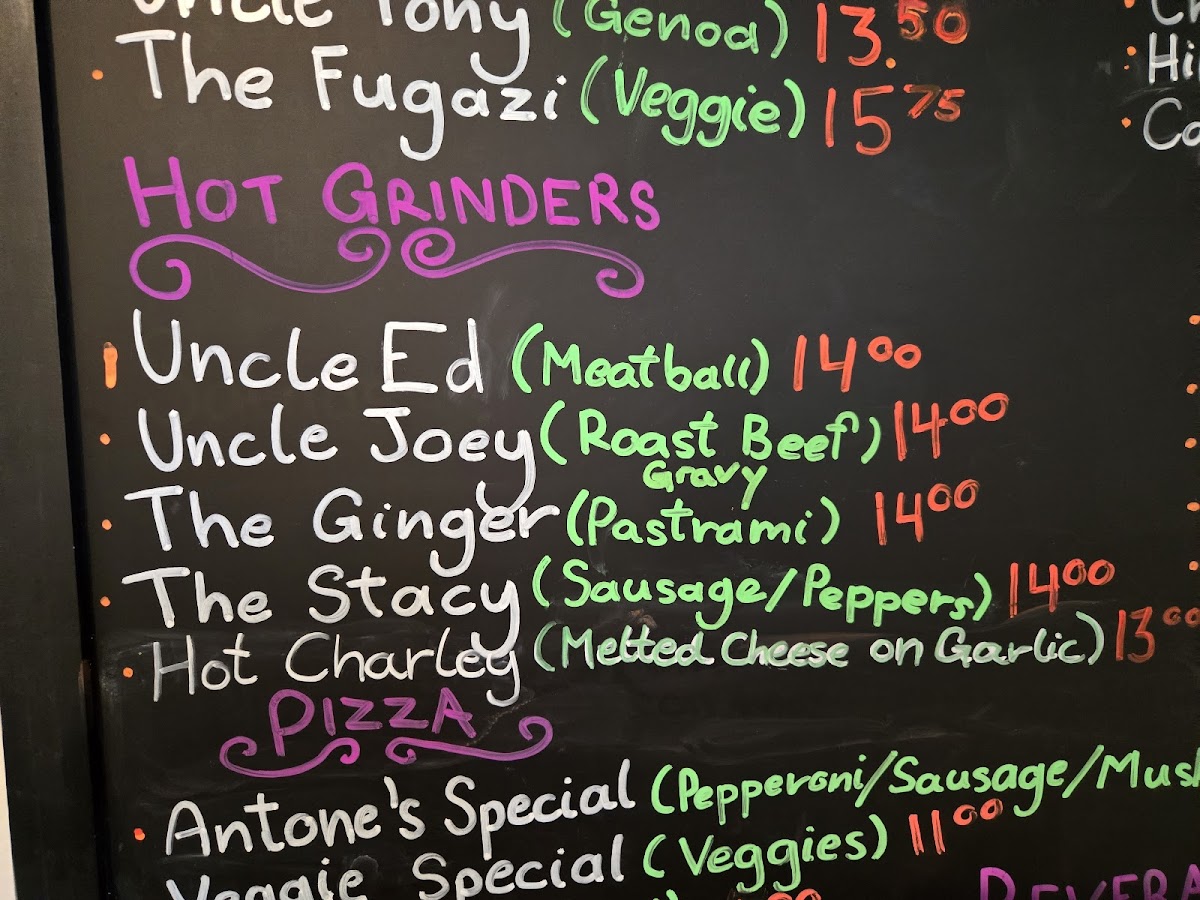 Uncle Tony (Genoa) 13.50
The Fugazi (Veggie) 15 75
HOT GRINDERS
Uncle Ed (Meatball) 14 00
Uncle Joey (Roast Beef) 14 00
Gravy
The Ginger (Pastrami) 14 00
The Stacy (Sausage/Peppers) 14 00
Hot Charley (Melted Cheese on Garlic) 13 00
PIZZA
Antone's Special (Pepperoni/Sausage/Mush
Veggie Special (Veggies) 11 00
BEVERA
Hi
Ca